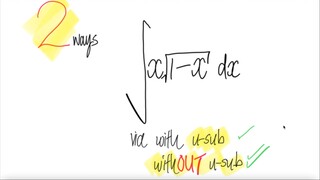 2 ways
∫x√1-x dx
via with u-sub ✓
withOUT u-sub ✓✓